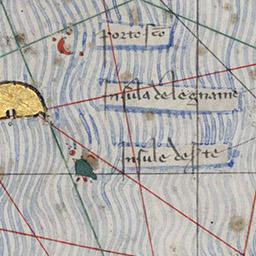 porto sco
insula de legname
insule desexte